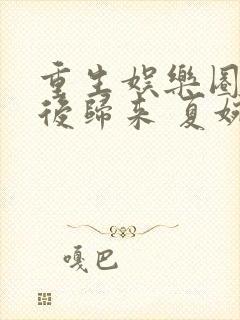 重生娛樂圈
後歸來 夏婉
嘎巴